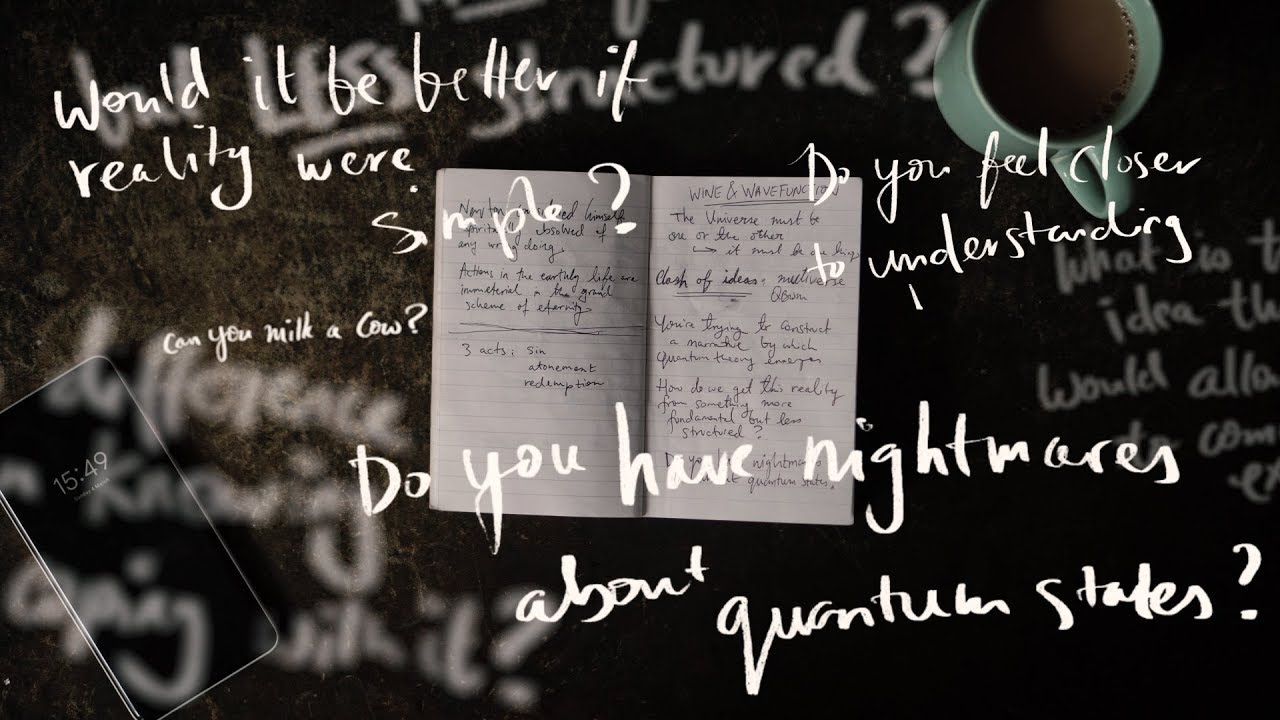 Would it be better if
reality were
simple?
Do you feel closer
to understanding
can you milk a cow?
Do you have nightmares
about quantum states?
LESS structured?
difference
knowing
with it?
What is
idea
would
15:49
Newton himself
absolved of
any wrongdoing.
Actions in the earthly life are
immaterial in the grand
scheme of eternity
3 acts: sin
atonement
redemption
WINE & WAVEFUNCTION
The Universe must be
one or the other
↳ it must be
Clash of ideas: multiverse
QBism
You're trying to construct
a narrative by which
quantum theory emerges
How do we get this reality
from something more
fundamental but less
structured?
nightmares
quantum states.